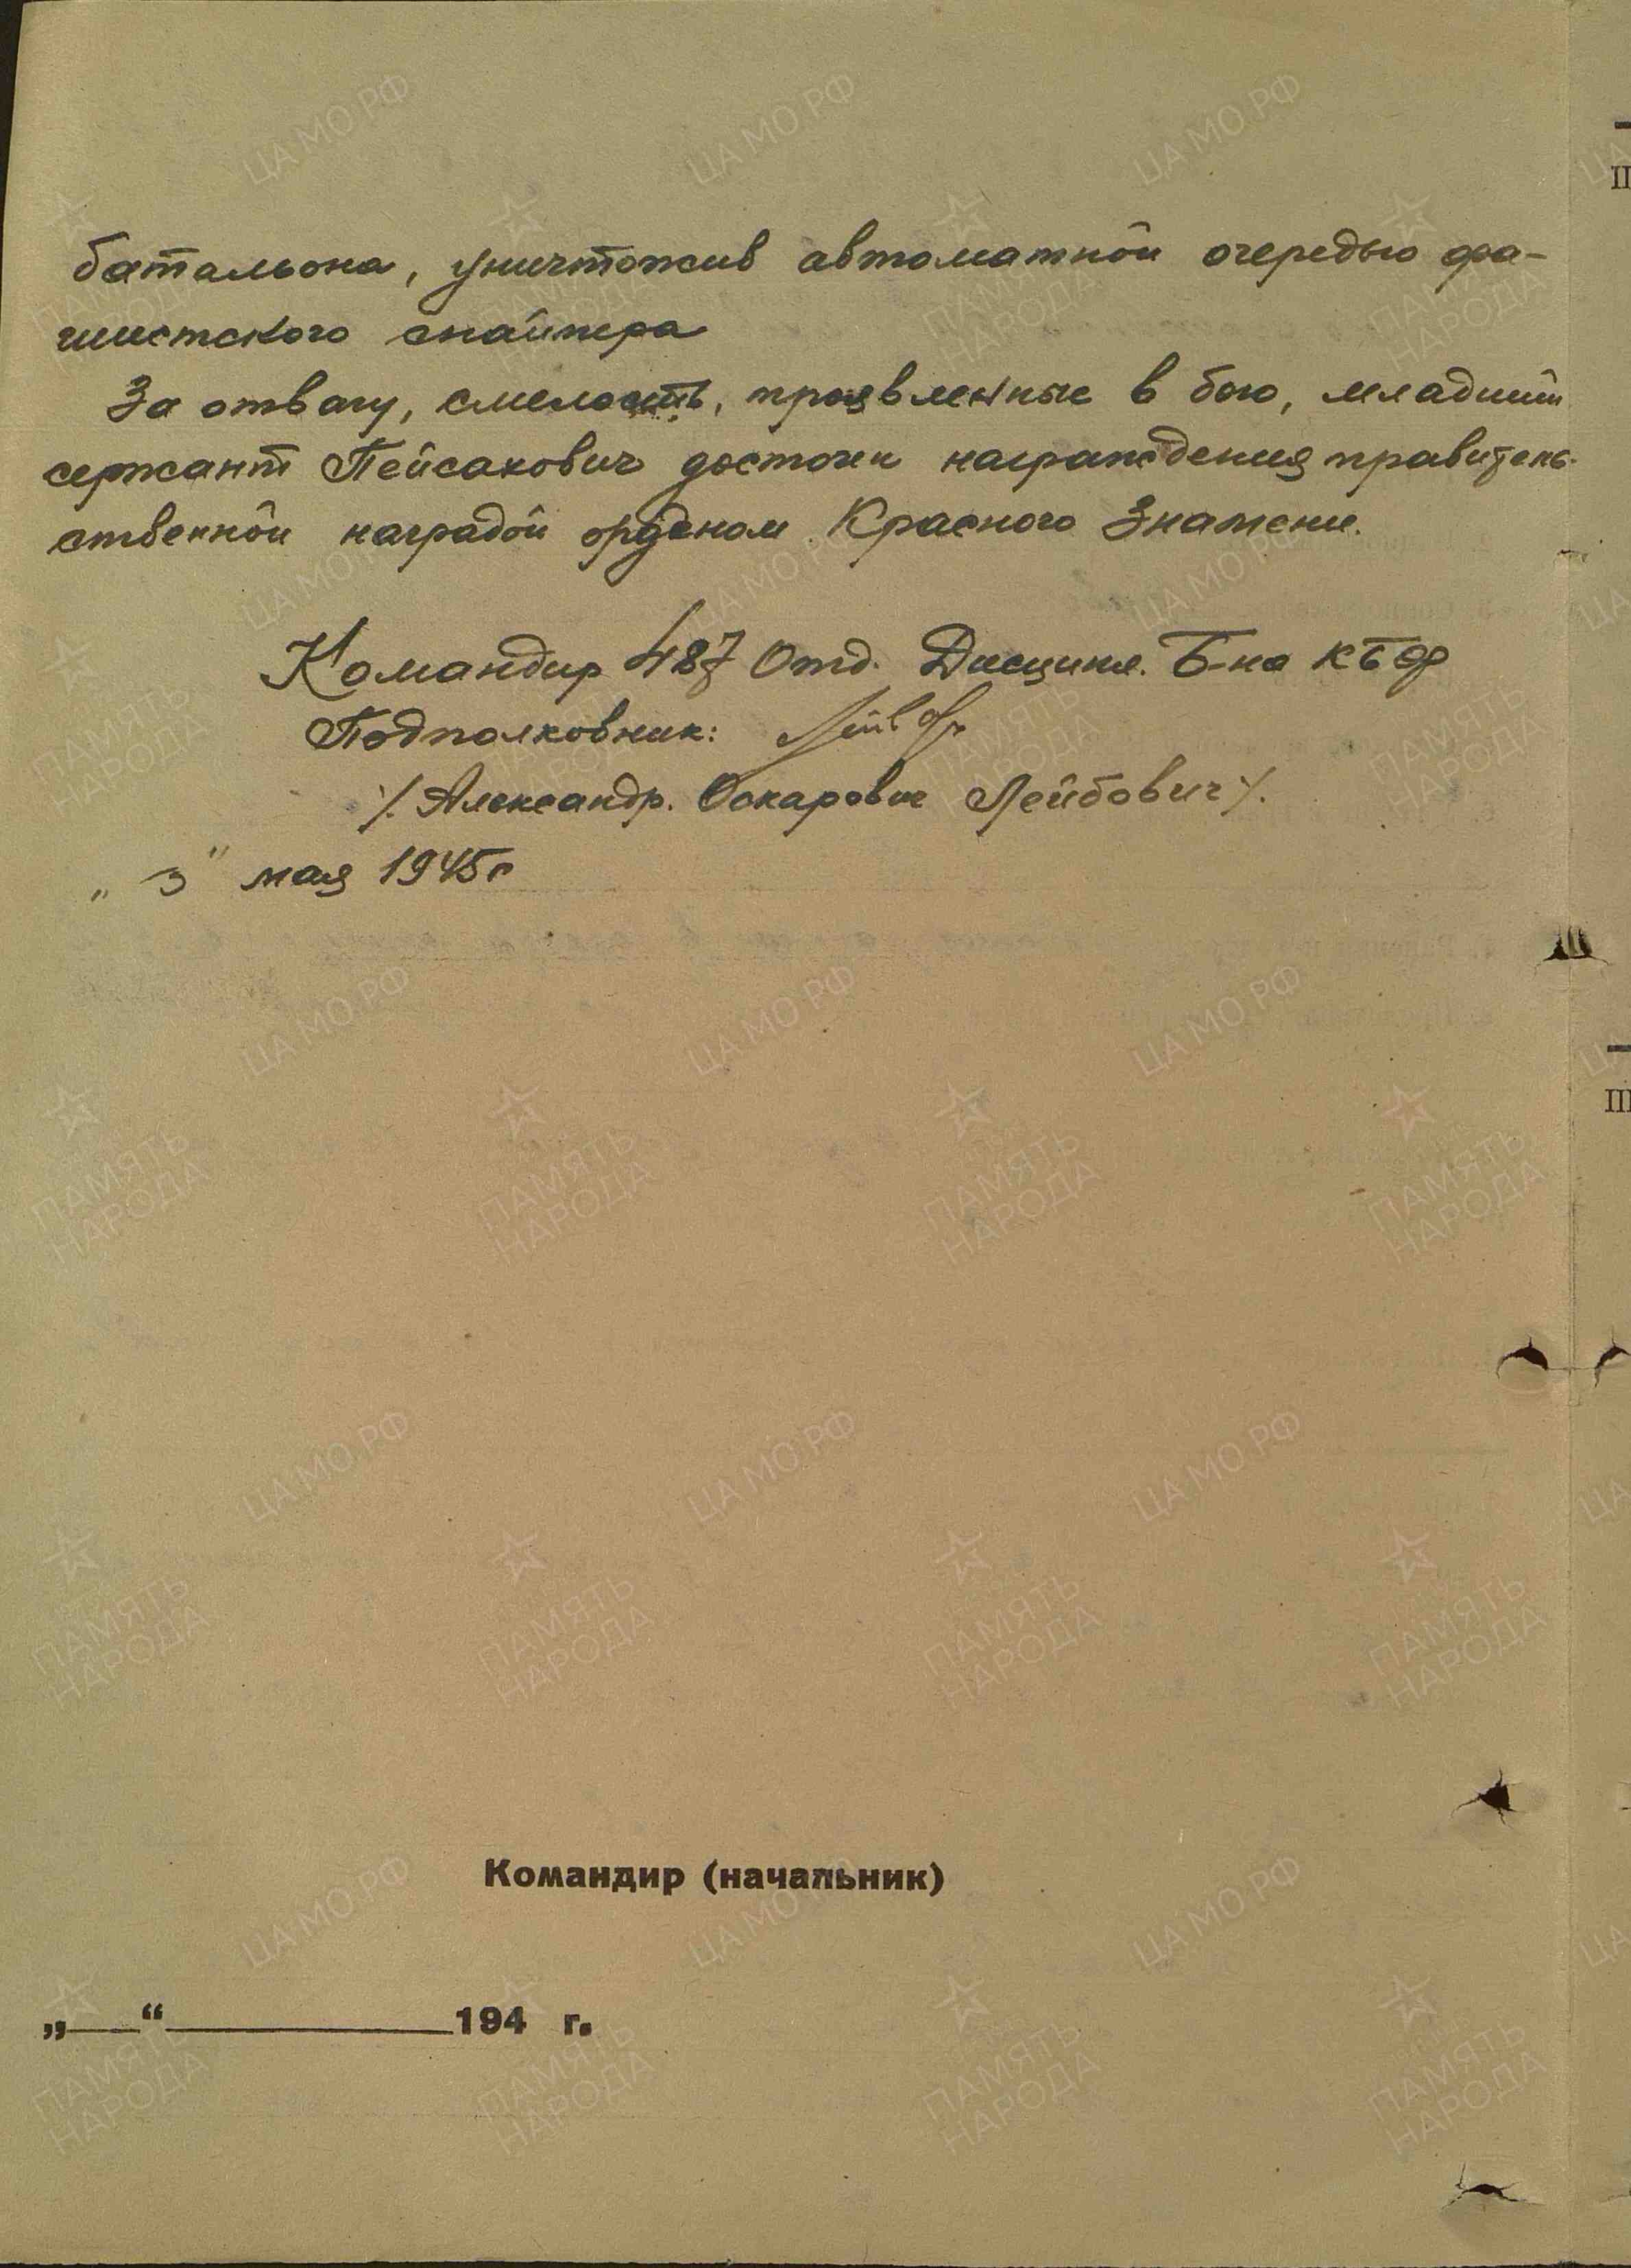 батальона, уничтожив автоматной очередью фа-
шистского снайпера
За отвагу, смелость, проявленные в бою, младший
сержант Пейсахович достоин награждения правитель-
ственной наградой орденом Красного Знамени.
Командир 487 Отд. Дисципл. Б-на КБФ
Подполковник:
/. Александр. Оскарович Лейбович /.
„ 3 " мая 1945г
Командир (начальник)
„ “ 194 г.
II
III
ЦА МО РФ
ПАМЯТЬ НАРОДА